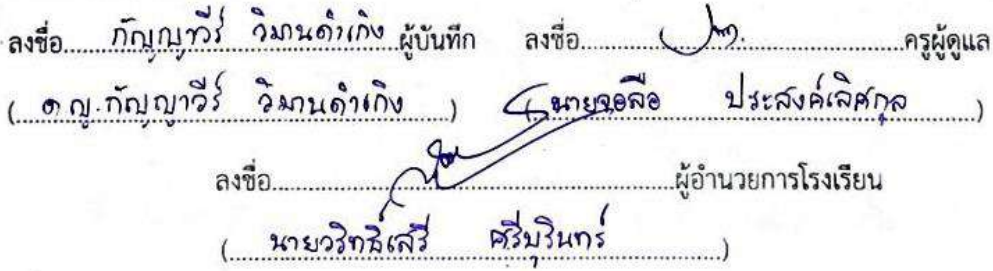 ลงชื่อ.....กัญญาวีร์ วิมานดำเกิง.....ผู้บันทึก ลงชื่อ..........ครูผู้ดูแล
(.....ด.ญ.กัญญาวีร์ วิมานดำเกิง.....) (.....นายจอลือ ประสงค์เลิศกุล.....)
ลงชื่อ..........ผู้อำนวยการโรงเรียน
(.....นายวริทธิ์เสรี ศรีบุรินทร์.....)